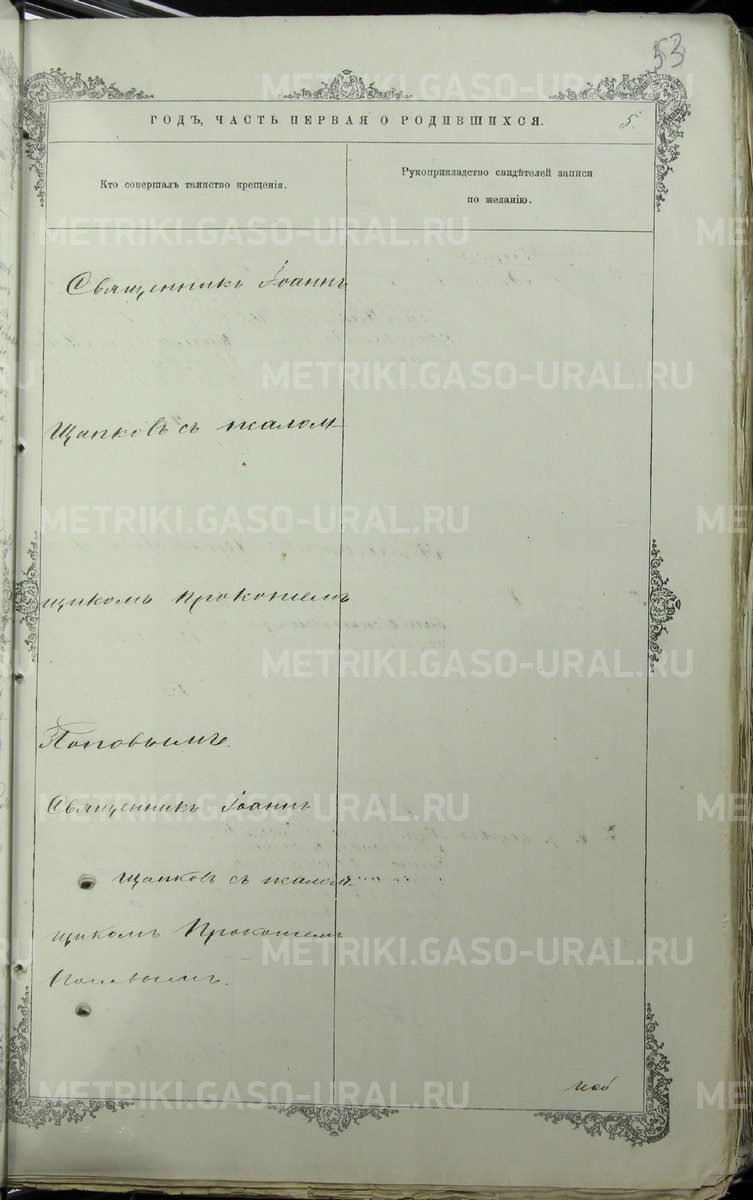 53
ГОДЪ, ЧАСТЬ ПЕРВАЯ О РОДИВШИХСЯ.
5.
Кто совершалъ таинство крещенія.
Рукоприкладство свидѣтелей записи
по желанію.
Священникъ Іоаннъ
Щапковъ съ псалом
щикомъ Прокопіемъ
Поповымъ.
Священникъ Іоаннъ
Щапковъ съ псалом
щикомъ Прокопіемъ
Поповымъ.
METRIKI.GASO-URAL.RU